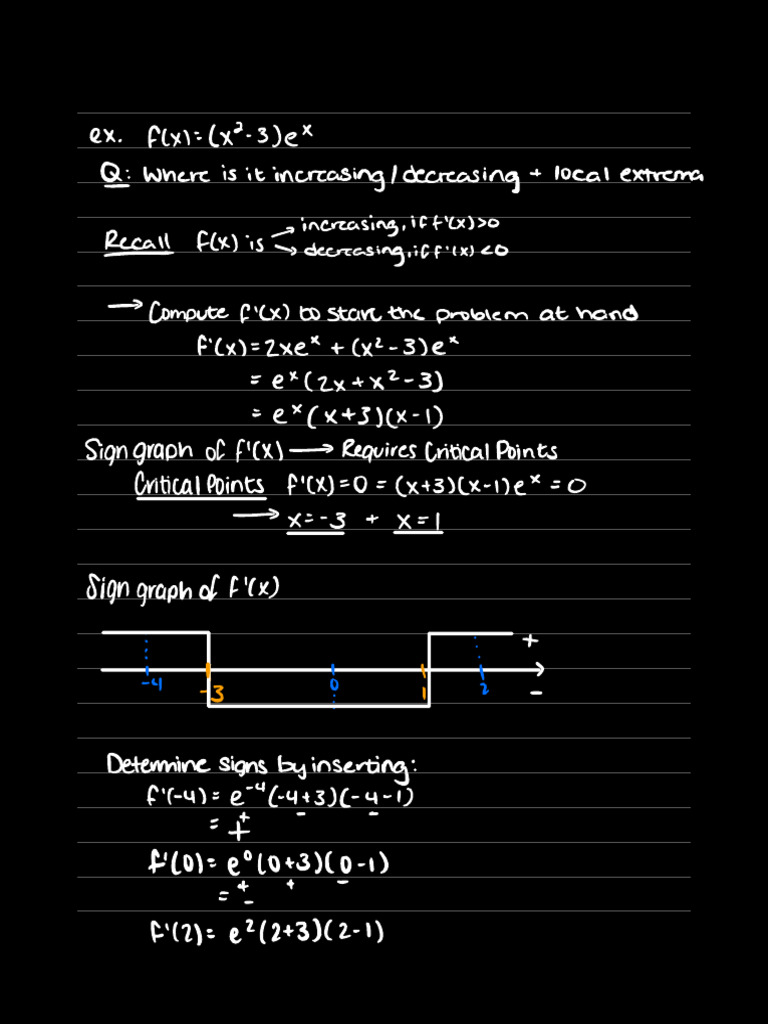 ex. f(x)=(x²-3)eˣ
Q: Where is it increasing/decreasing + local extrema
Recall f(x) is → increasing, if f'(x)>0
→ decreasing, if f'(x)<0
→ Compute f'(x) to start the problem at hand
f'(x)=2xeˣ + (x²-3)eˣ
= eˣ(2x+x²-3)
= eˣ(x+3)(x-1)
Sign graph of f'(x) → Requires Critical Points
Critical Points f'(x)=0 = (x+3)(x-1)eˣ=0
→ x=-3 + x=1
Sign graph of f'(x)
+
-4 -3 0 1 2 -
Determine signs by inserting:
f'(-4) = e⁻⁴(-4+3)(-4-1)
+ - -
= +
f'(0)= e⁰(0+3)(0-1)
+ + -
= -
f'(2)= e²(2+3)(2-1)